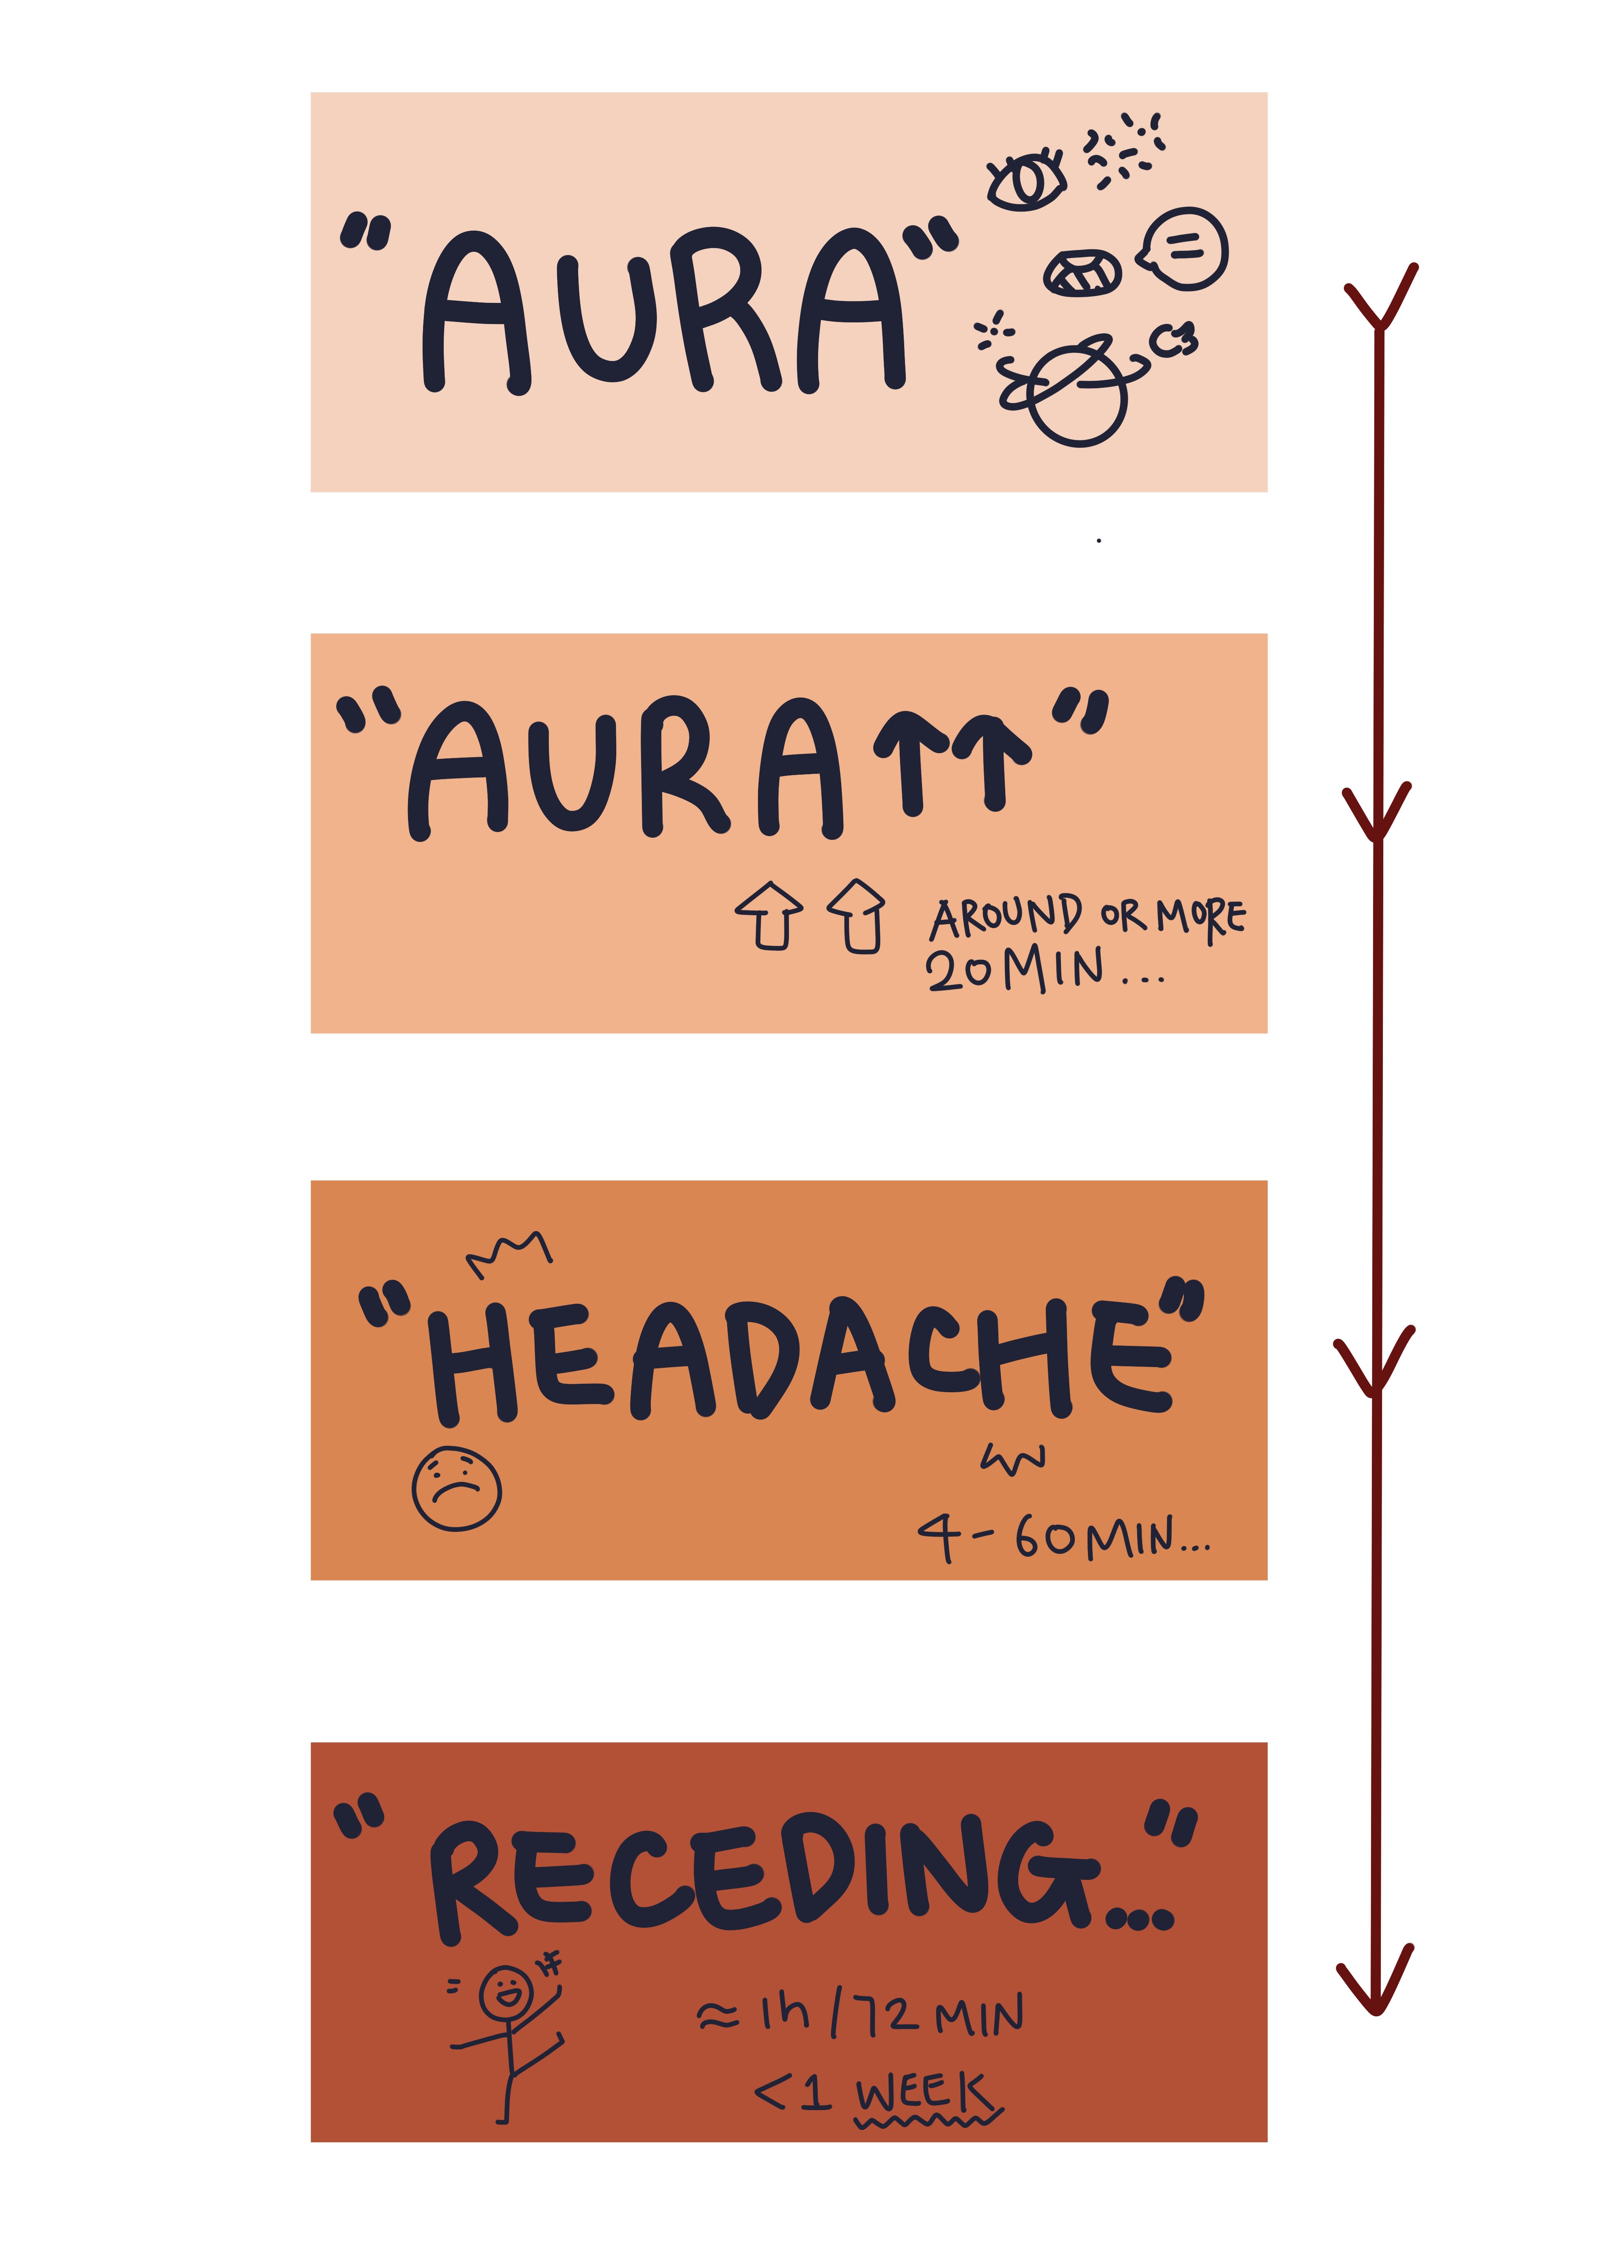 "AURA"
"AURA↑↑"
AROUND OR MORE
20 MIN...
"HEADACHE"
4-60MIN...
"RECEDING..."
≈ 1h/72 MIN
<1 WEEK